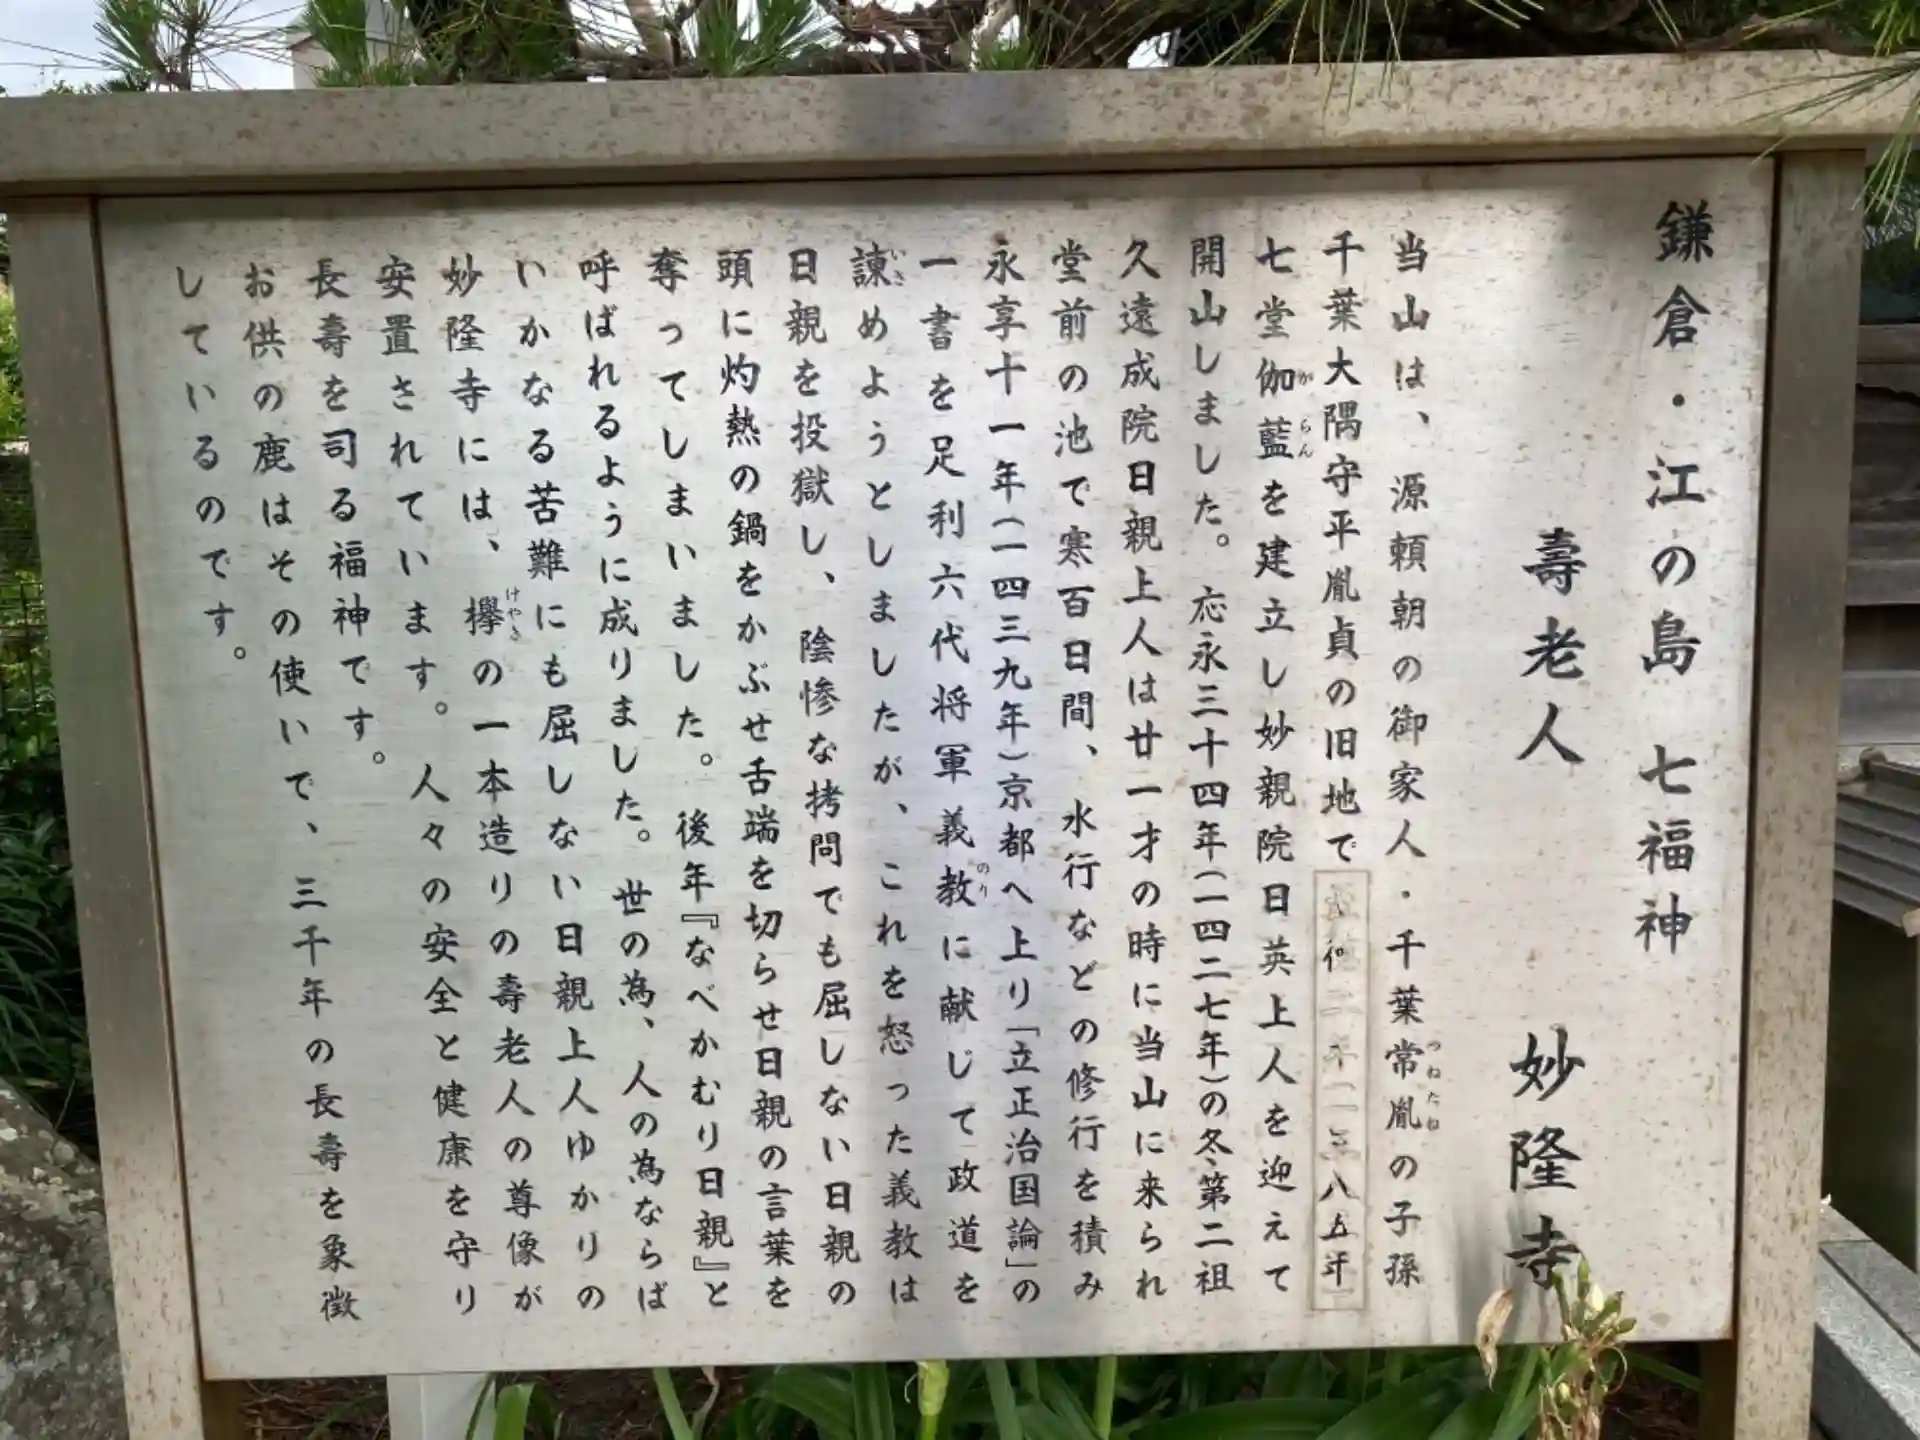 鎌倉・江の島 七福神
壽老人 妙隆寺
当山は、源頼朝の御家人・千葉常胤の子孫
千葉大隅守平胤貞の旧地で 八五年
七堂伽藍を建立し妙親院日英上人を迎えて
開山しました。応永三十四年(一四二七年)の冬、第二祖
久遠成院日親上人は廿一才の時に当山に来られ
堂前の池で寒百日間、水行などの修行を積み
永享十一年(一四三九年)京都へ上り「立正治国論」の
一書を足利六代将軍義教に献じて政道を
諌めようとしましたが、これを怒った義教は
日親を投獄し、陰惨な拷問でも屈しない日親の
頭に灼熱の鍋をかぶせ舌端を切らせ日親の言葉を
奪ってしまいました。後年『なべかむり日親』と
呼ばれるように成りました。世の為、人の為ならば
いかなる苦難にも屈しない日親上人ゆかりの
妙隆寺には、欅の一本造りの壽老人の尊像が
安置されています。人々の安全と健康を守り
長壽を司る福神です。
お供の鹿はその使いで、三千年の長壽を象徴
しているのです。